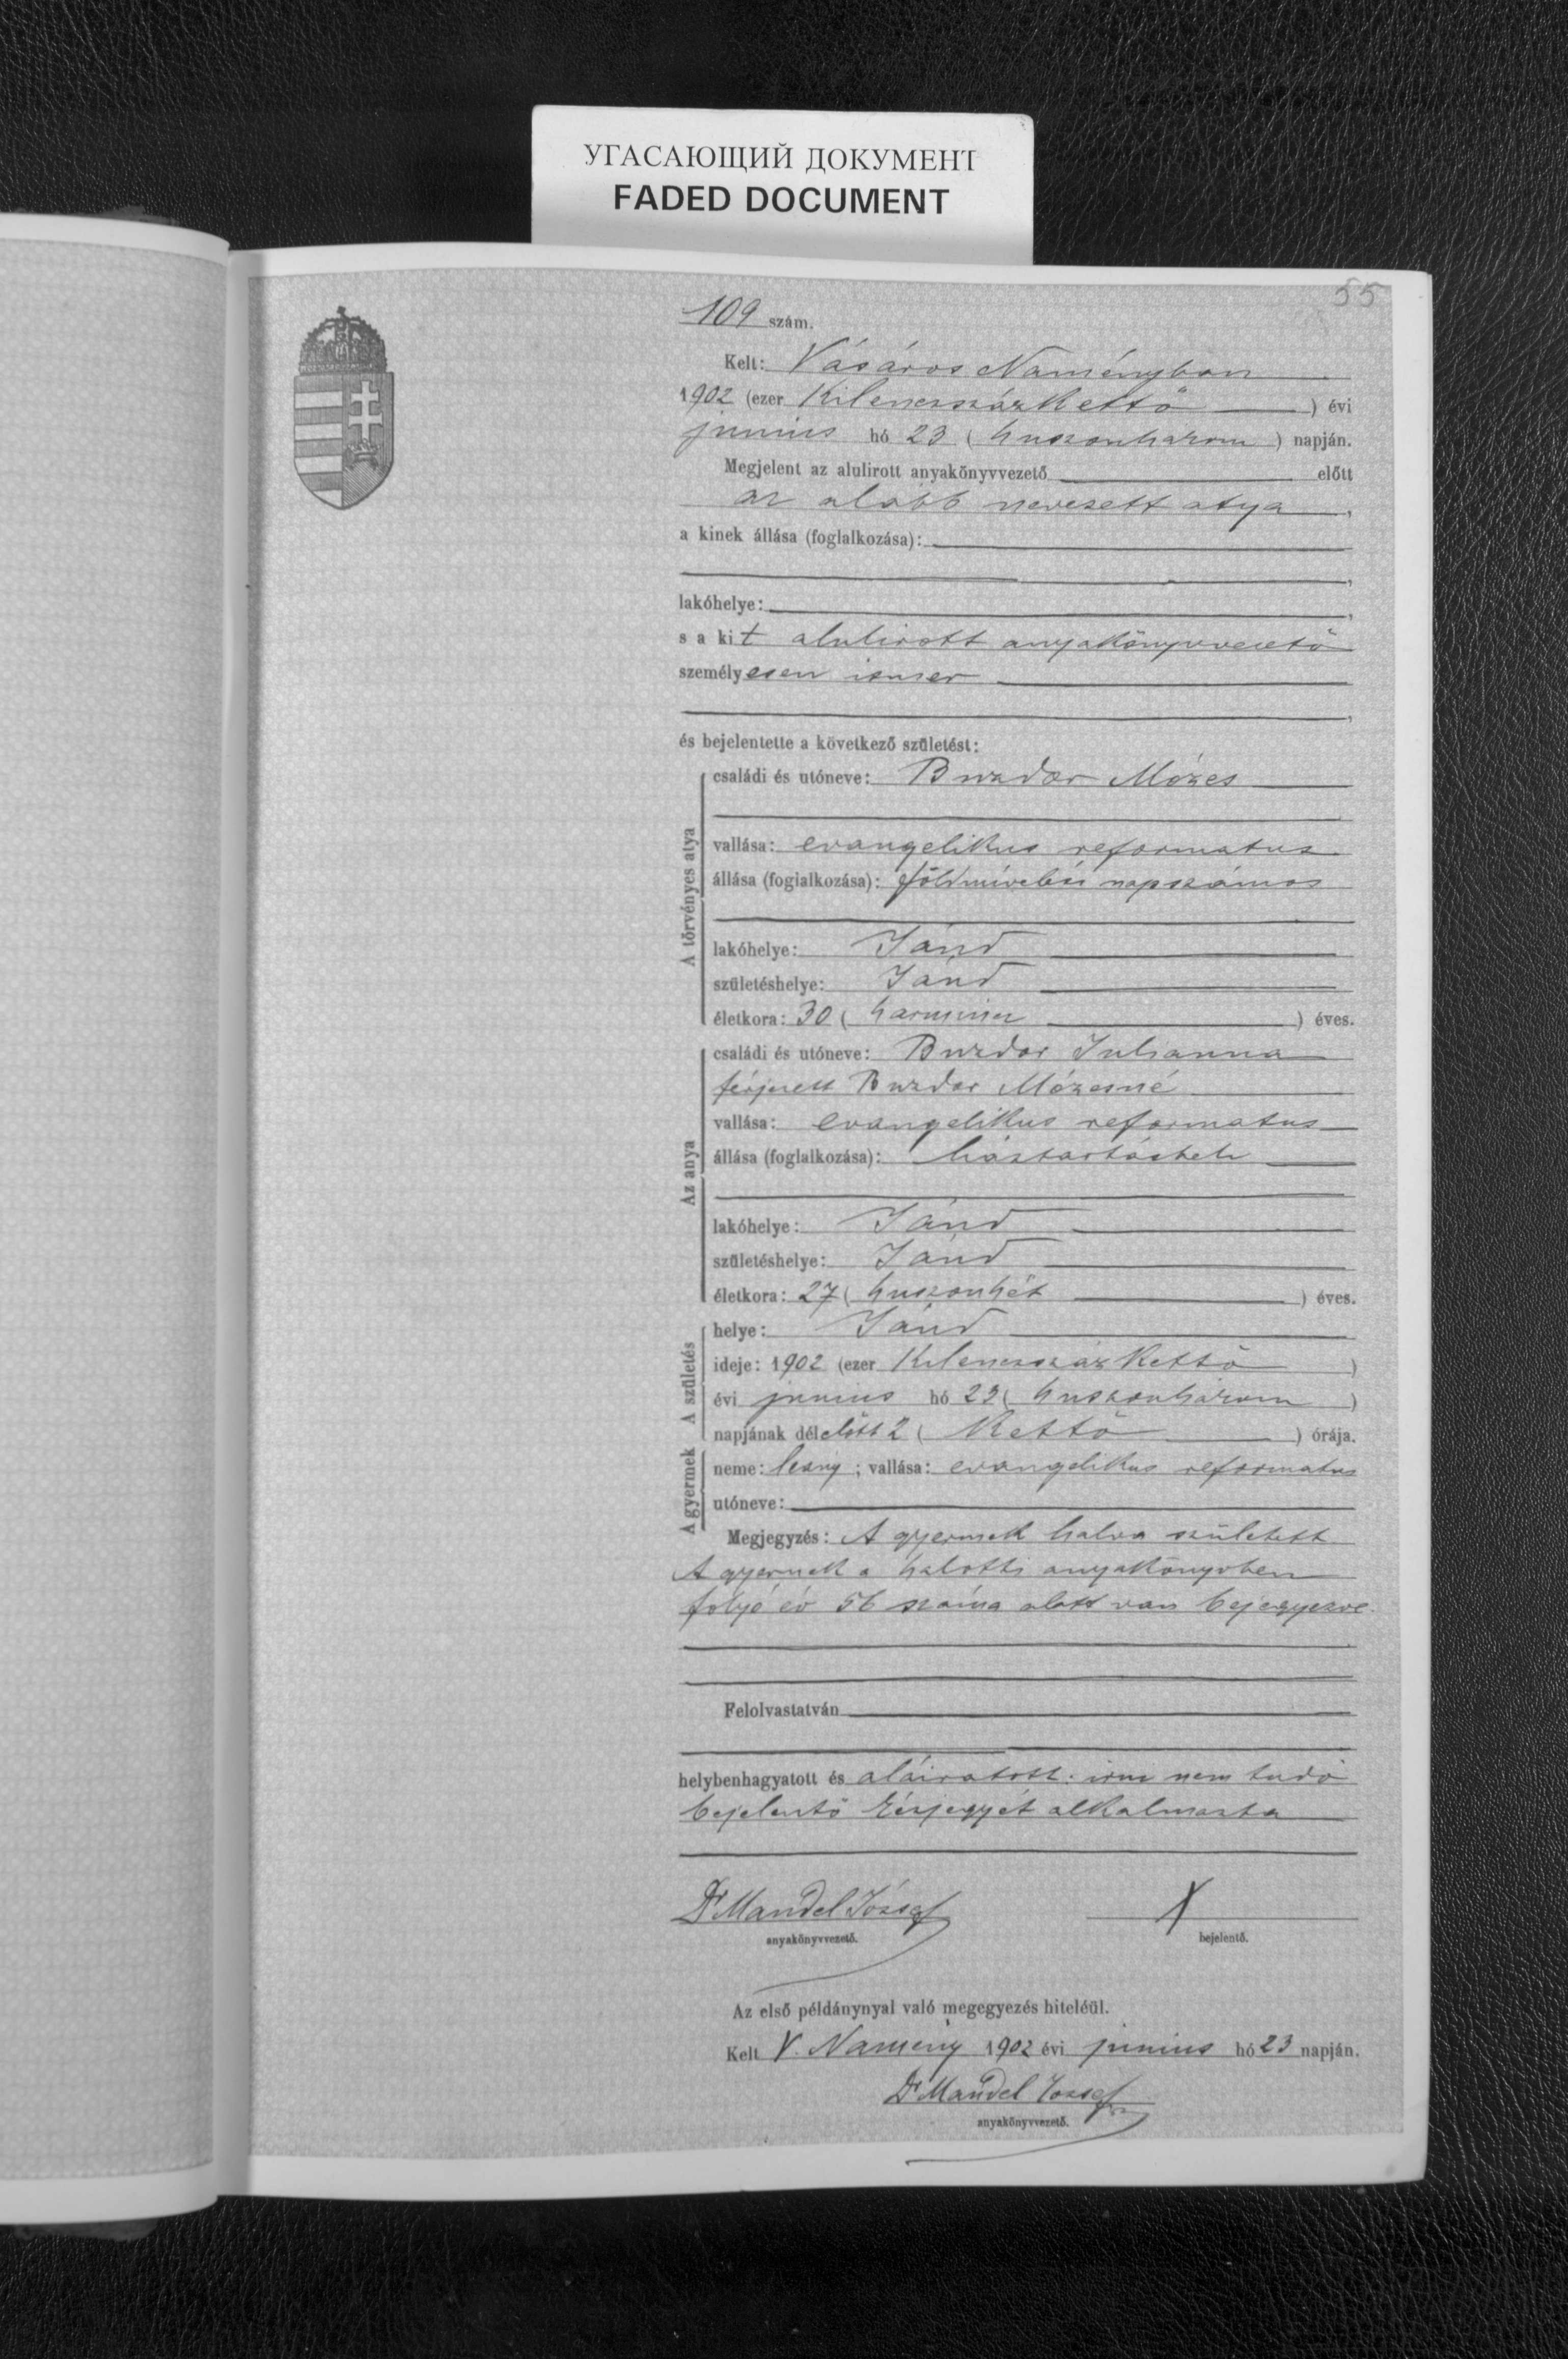 УГАСАЮЩИЙ ДОКУМЕНТ
FADED DOCUMENT
55
109 szám.
Kelt: Vásáros Naményban
1902 (ezer Kilenczszázkettő) évi
junius hó 23 (huszonhárom) napján.
Megjelent az alulirott anyakönyvvezető előtt
az alább nevezett atya,
a kinek állása (foglalkozása):
lakóhelye:
s a kit alulirott anyakönyvvezető
személyesen ismer
és bejelentette a következő születést:
A törvényes atya
családi és utóneve: Buzdor Mózes
vallása: evangelikus reformatus
állása (foglalkozása): földmívelési napszámos
lakóhelye: Jánd
születéshelye: Jánd
életkora: 30 (harmincz) éves.
Az anya
családi és utóneve: Buzdor Julianna
férjezett Buzdor Mózesné
vallása: evangelikus reformatus
állása (foglalkozása): háztartásbeli
lakóhelye: Jánd
születéshelye: Jánd
életkora: 27 (huszonhét) éves.
A születés
helye: Jánd
ideje: 1902 (ezer Kilenczszázkettő)
évi junius hó 23 (huszonhárom)
napjának délelőtt 2 (Kettő) órája.
A gyermek
neme: leány; vallása: evangelikus reformatus
utóneve:
Megjegyzés: A gyermek halva született
A gyermek a halotti anyakönyvben
folyó év 56 száma alatt van bejegyezve
Felolvastatván
helybenhagyatott és aláiratott. irni nem tudó
bejelentő kézjegyét alkalmazta
Dr Mandel József
anyakönyvvezető.
X
bejelentő.
Az első példánynyal való megegyezés hiteléül.
Kelt V. Namény 1902 évi junius hó 23 napján.
Dr Mandel József
anyakönyvvezető.